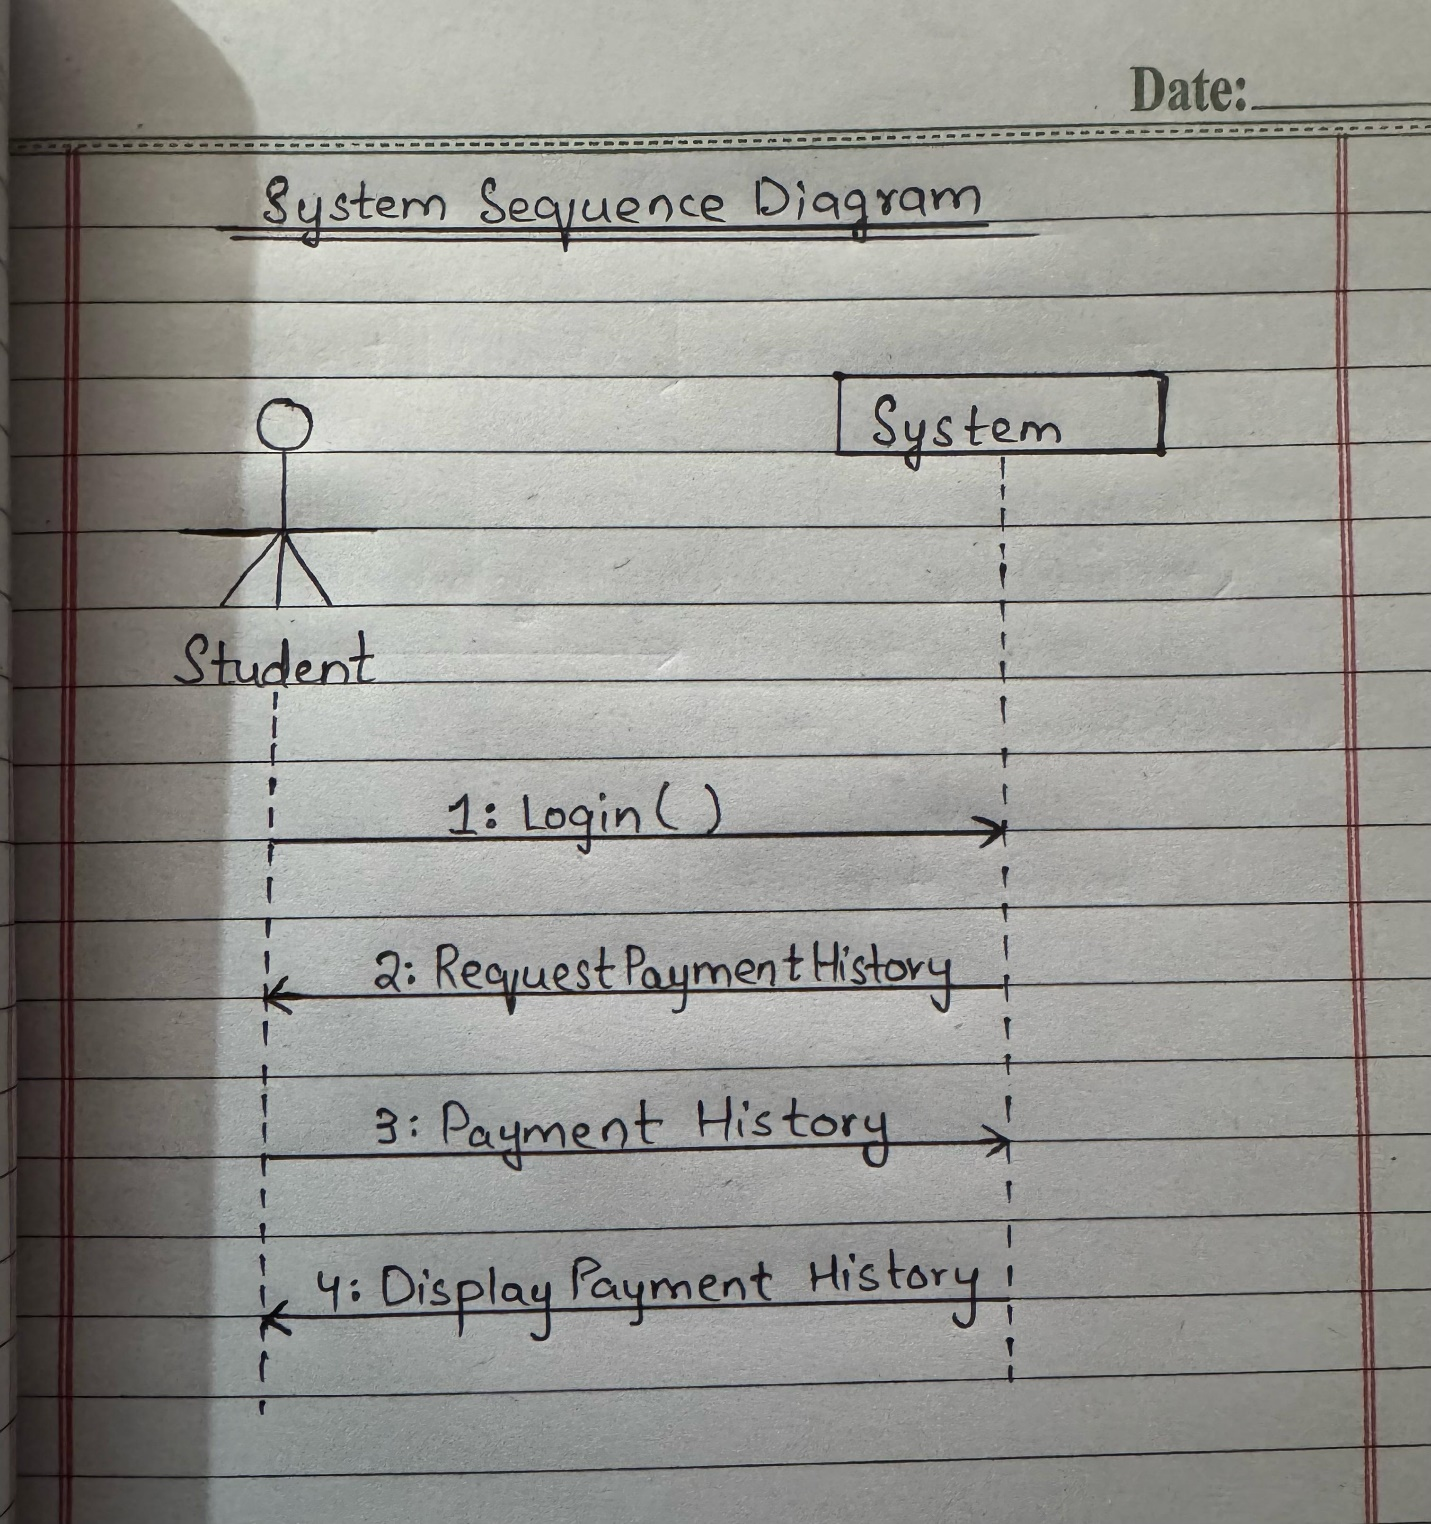 Date:
System Sequence Diagram
System
Student
1: Login()
2: RequestPaymentHistory
3: Payment History
4: Display Payment History